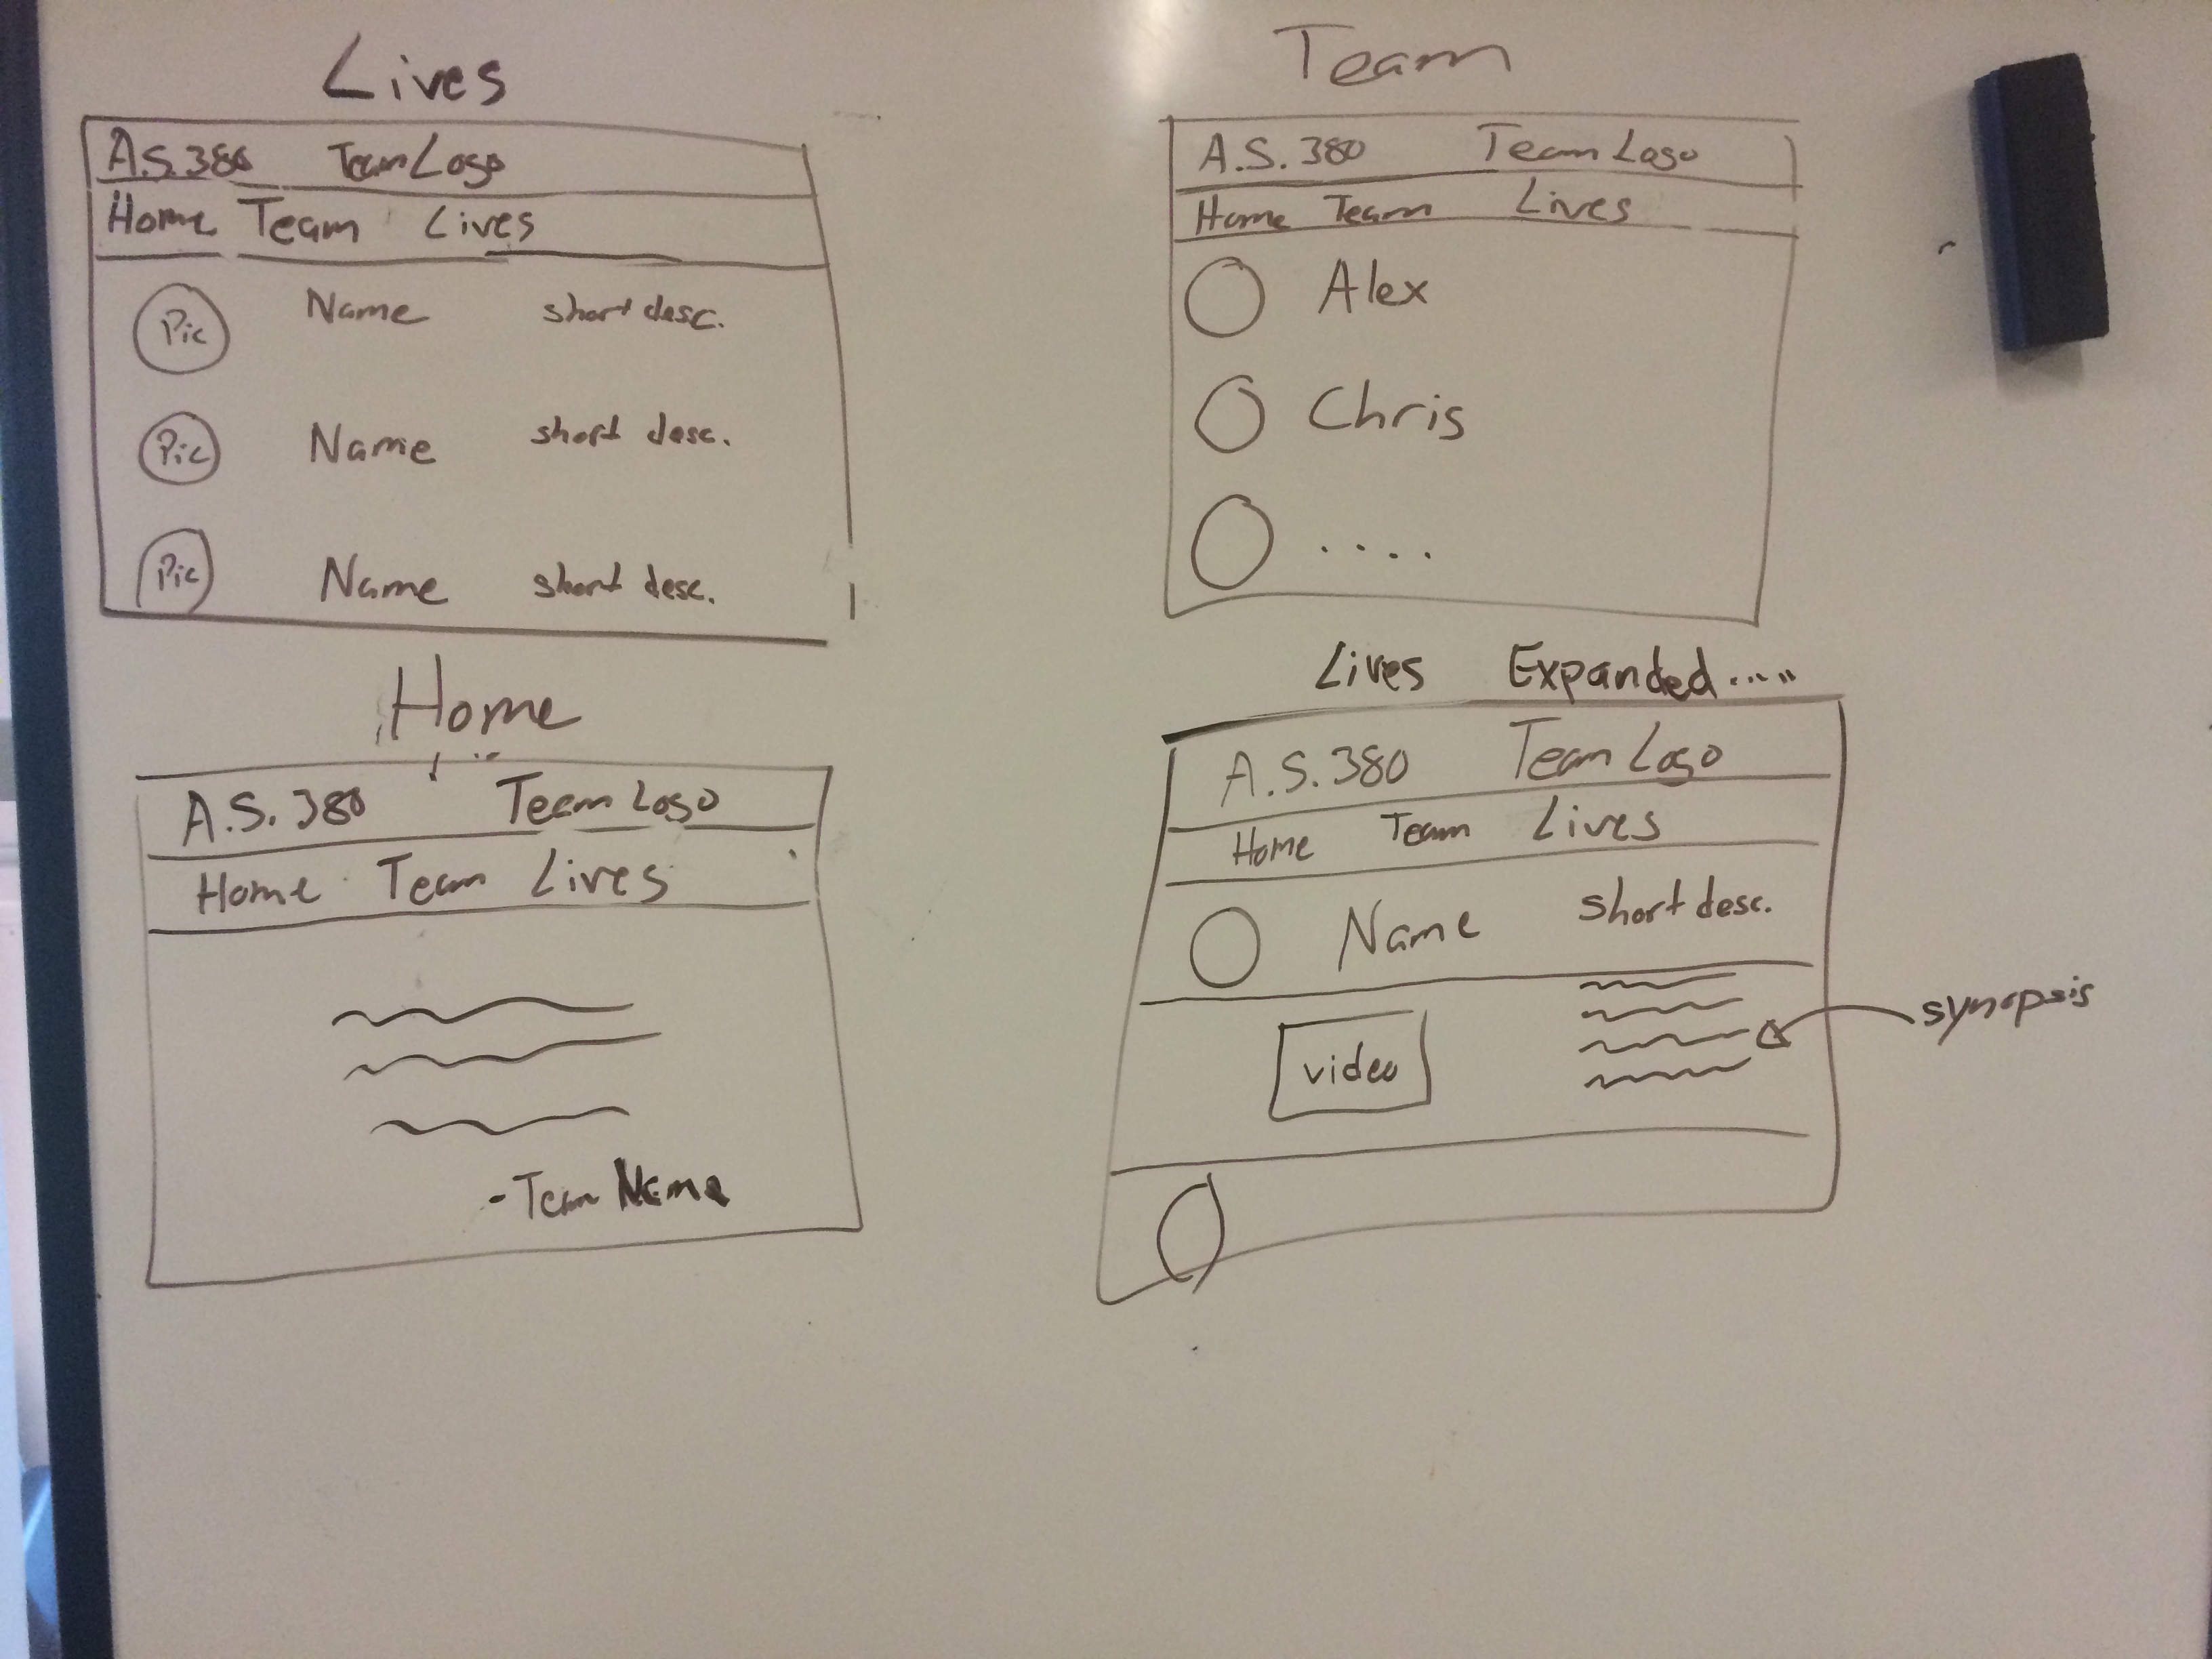 Lives
A.S.380 Team Logo
Home Team Lives
Pic Name short desc.
Pic Name short desc.
Pic Name short desc.
Team
A.S. 380 Team Logo
Home Team Lives
Alex
Chris
....
Home
A.S. 380 Team Logo
Home Team Lives
- Team Name
Lives Expanded.....
A.S. 380 Team Logo
Home Team Lives
Name short desc.
video
synopsis